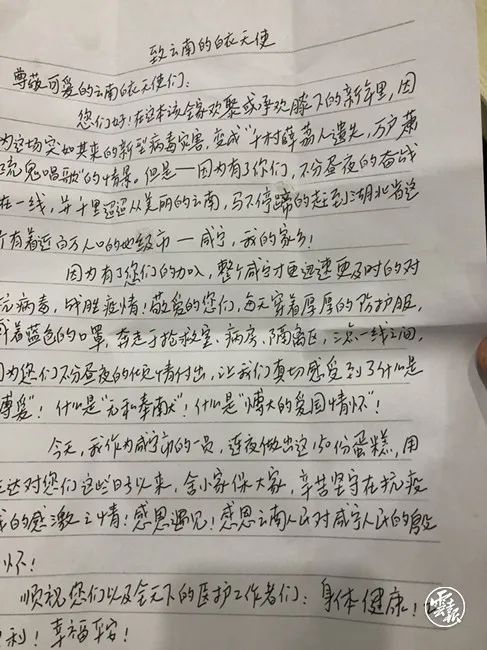 致云南的白衣天使
尊敬可爱的云南白衣天使们:
您们好!在这本该全家欢聚或承欢膝下的新年里,因
为这场突如其来的新型病毒灾害,变成“千村薜荔人遗失,万户萧
疏鬼唱歌”的情景。但是——因为有了你们,不分昼夜的奋战
在一线,并千里迢迢从美丽的云南,马不停蹄的赶到湖北省这
个有着近百万人口的地级市——咸宁,我的家乡!
因为有了您们的加入,整个咸宁才更迅速更及时的对
抗病毒,战胜疫情!敬爱的您们,每天穿着厚厚的防护服,
戴着蓝色的口罩,奔走于抢救室、病房、隔离区,三点一线之间,
因为您们不分昼夜的倾情付出,让我们真切感受到了什么是
博爱”!什么是“无私奉献”!什么是“博大的爱国情怀”!
今天,我作为咸宁市的一员,连夜做出这150份蛋糕,用
达对您们这些日子以来,舍小家保大家,辛苦坚守在抗疫
的感激之情!感恩遇见!感恩云南人民对咸宁人民的
怀!
顺祝您们以及全天下的医护工作者们:身体健康!
利!幸福平安!
雲報